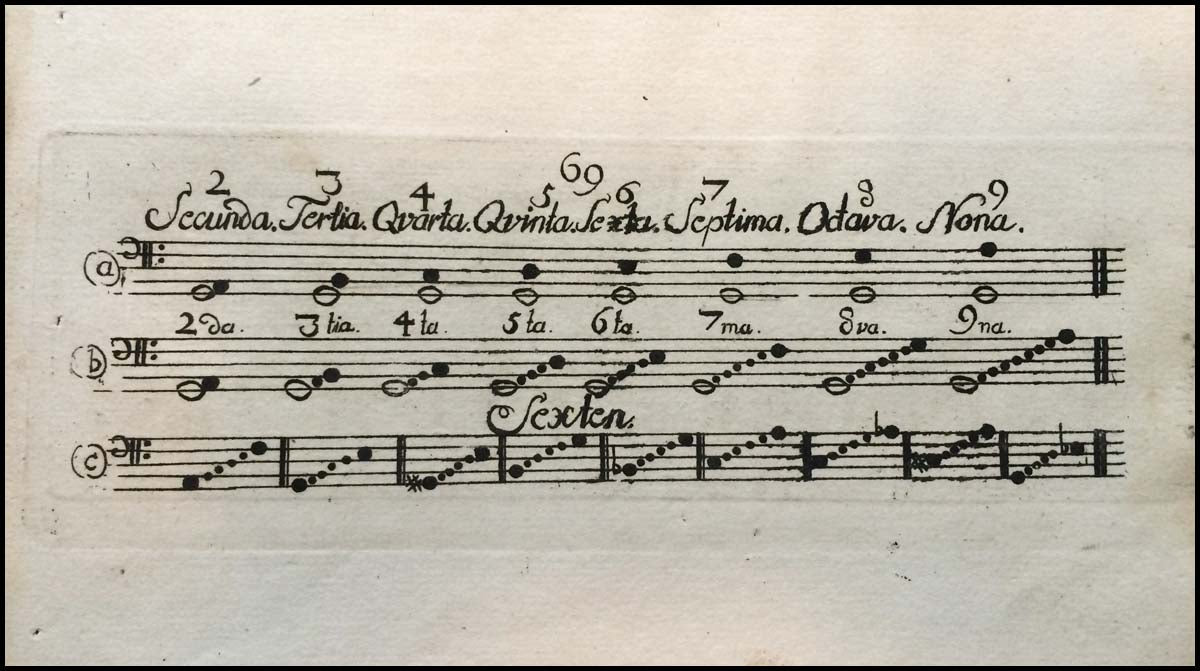 69
2 3 4 5 6 7 8 9
Secunda. Tertia. Qvarta. Qvinta. Sexta. Septima. Octava. Nona.
a
2da. 3tia. 4ta. 5ta. 6ta. 7ma. 8va. 9na.
b
Sexten.
c